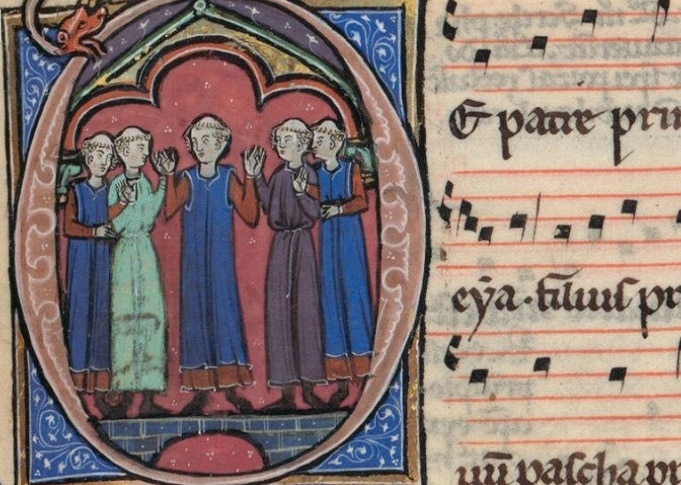 Ex patre prin
eya. filius pr
uū pascha pr